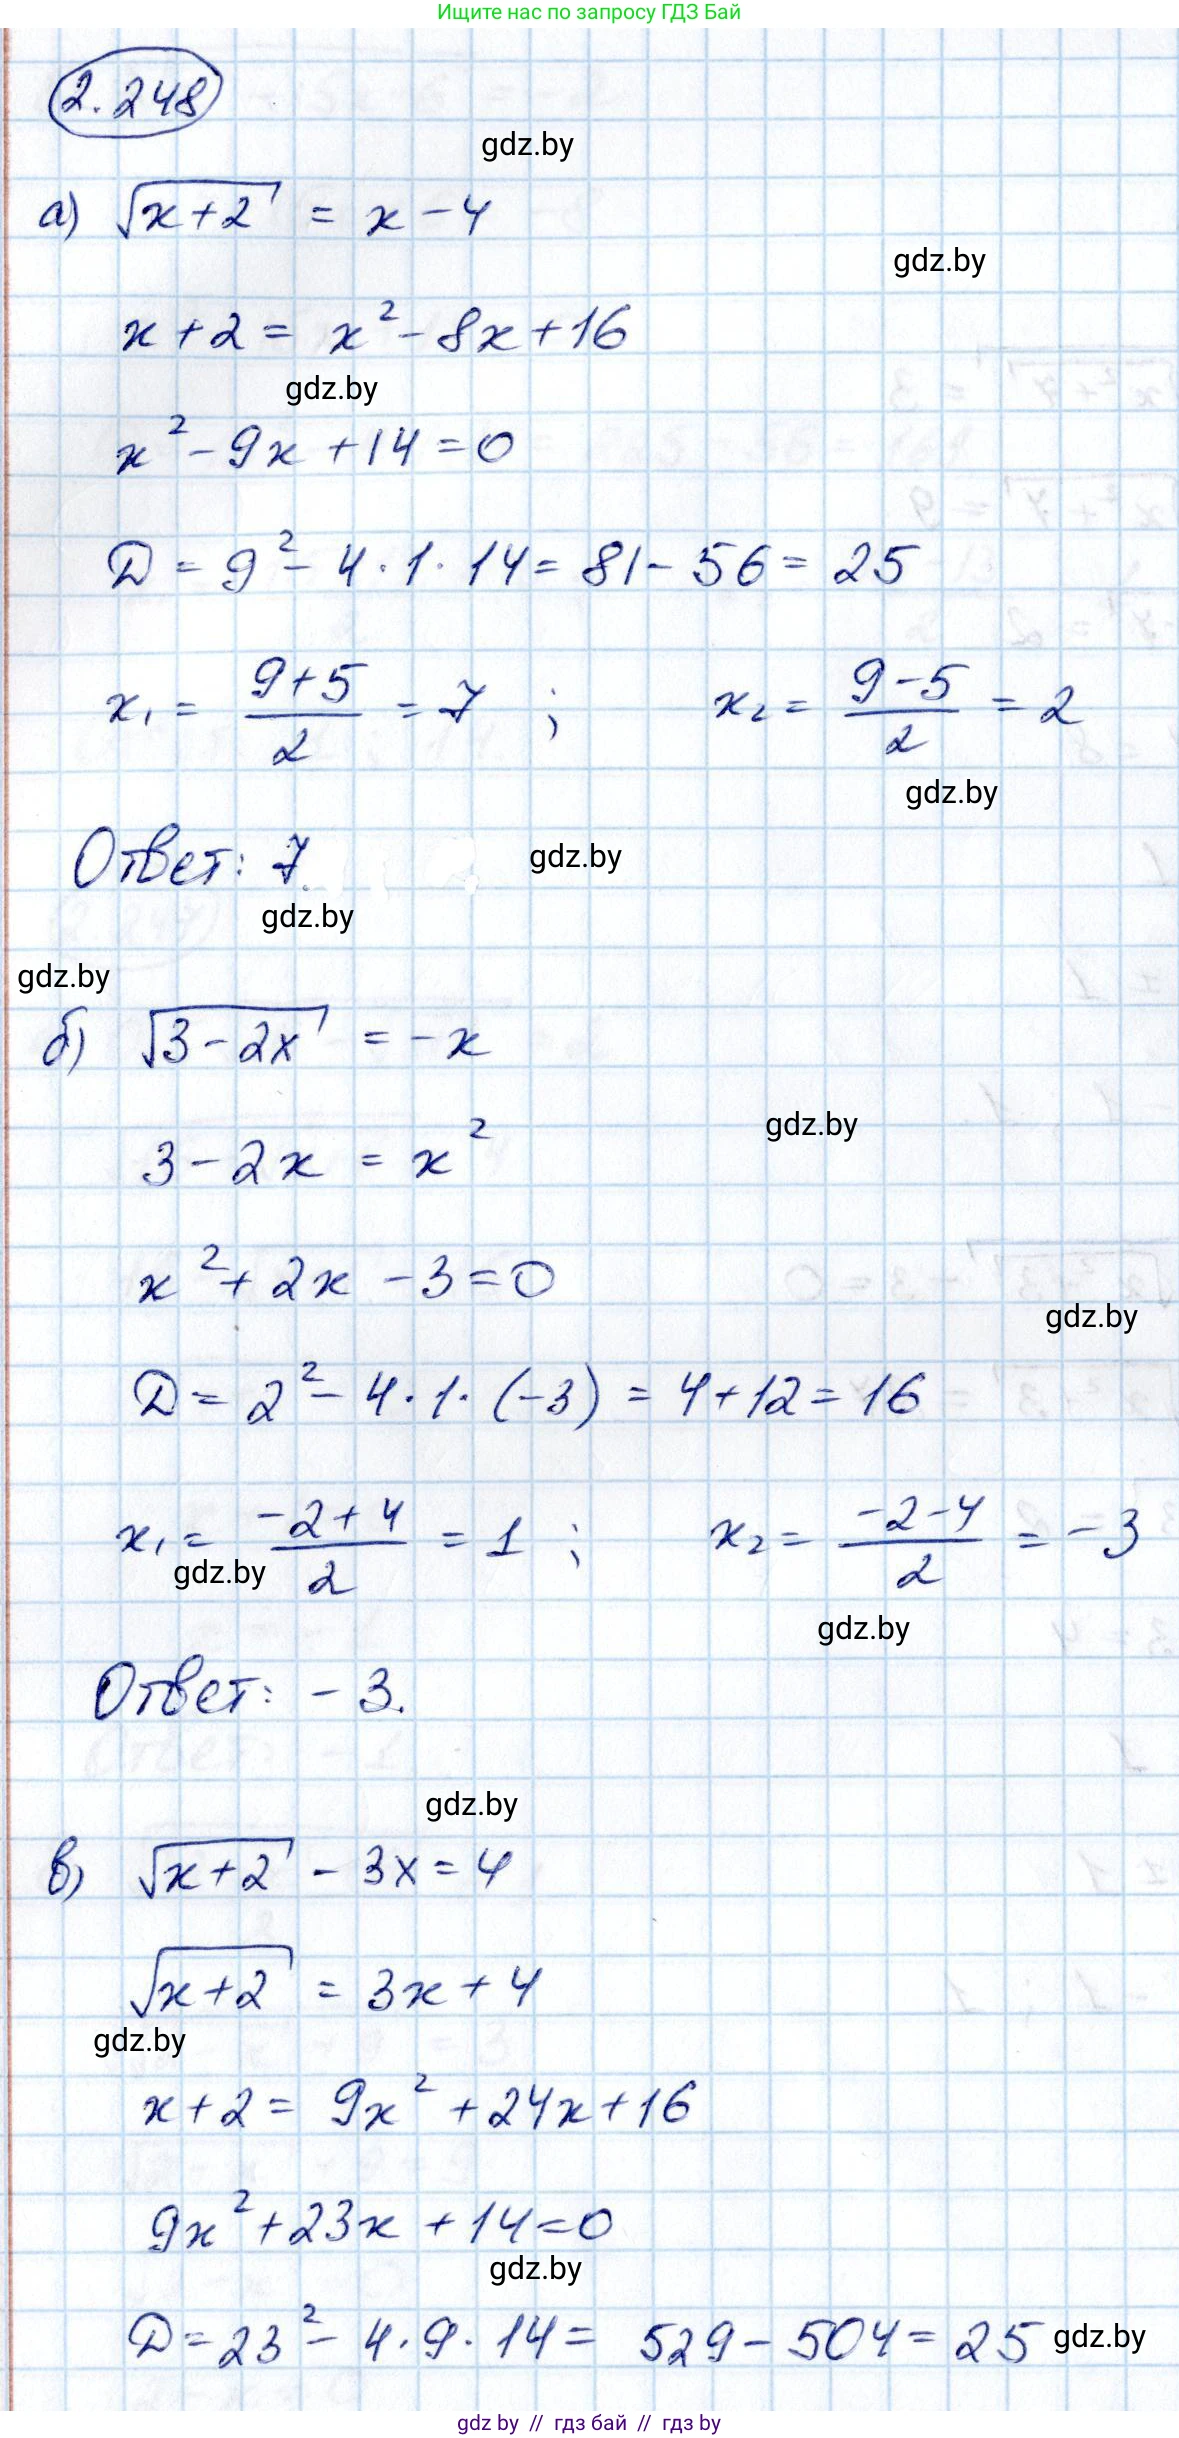 Ищите нас по запросу ГДЗ Бай
2.248
gdz.by
а) √(x+2) = x - 4
gdz.by
x + 2 = x² - 8x + 16
gdz.by
x² - 9x + 14 = 0
D = 9² - 4 · 1 · 14 = 81 - 56 = 25
x₁ = (9+5)/2 = 7 ; x₂ = (9-5)/2 = 2
gdz.by
Ответ: 7.
gdz.by
gdz.by
gdz.by
б) √(3-2x) = -x
gdz.by
3 - 2x = x²
x² + 2x - 3 = 0
gdz.by
D = 2² - 4 · 1 · (-3) = 4 + 12 = 16
x₁ = (-2+4)/2 = 1 ; x₂ = (-2-4)/2 = -3
gdz.by
gdz.by
Ответ: -3.
gdz.by
в) √(x+2) - 3x = 4
√(x+2) = 3x + 4
gdz.by
x + 2 = 9x² + 24x + 16
9x² + 23x + 14 = 0
gdz.by
D = 23² - 4 · 9 · 14 = 529 - 504 = 25 gdz.by
gdz by // гдз бай // гдз by